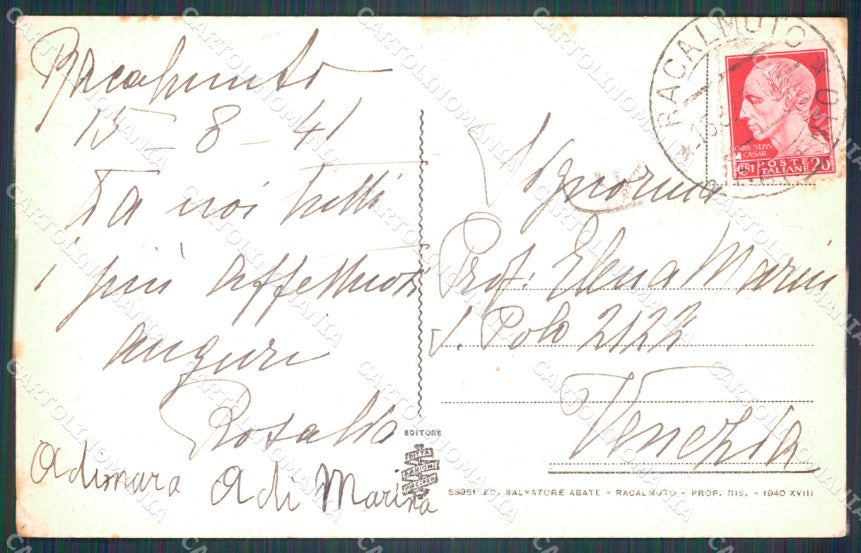 Racalmuto
15 - 8 - 41
Da noi tutti
i più affettuosi
auguri
Rosalba
Adimara Adi Marina
RACALMUTO
POSTE
ITALIANE 20
Signorina
Prof: Elena Marin
S. Polo 2122
Venezia
EDITORE
ED. SALVATORE ABATE - RACALMUTO - PROP. RIS. - 1940 XVIII
CARTOLINOMANIA